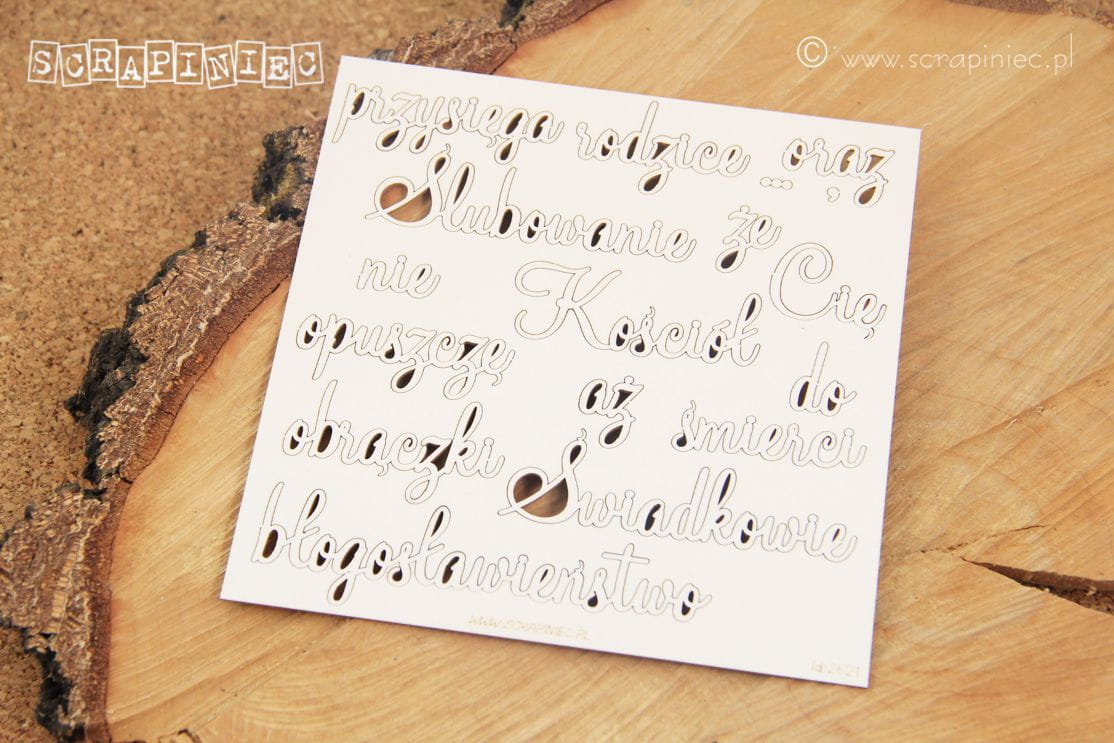 SCRAPINIEC
© www.scrapiniec.pl
przysięga rodzice ... oraz ,
Ślubowanie że
nie Kościół Cię
opuszczę aż do
obrączki śmierci
Świadkowie
błogosławieństwo
WWW.SCRAPINIEC.PL
Id:2621